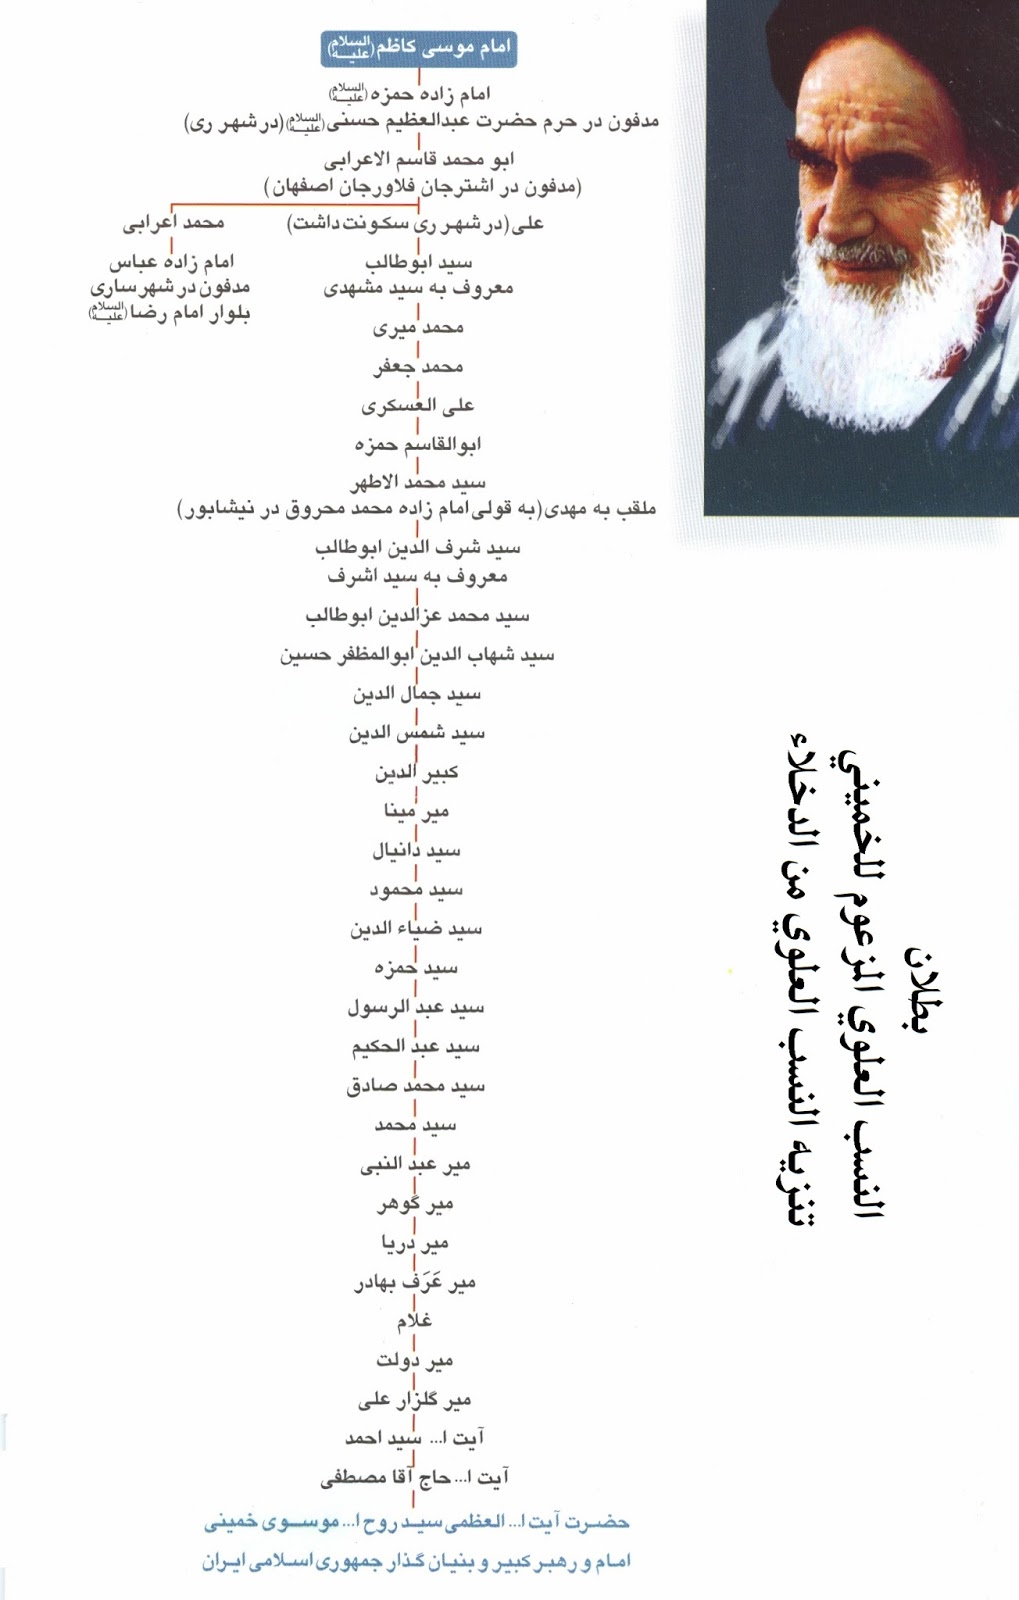 امام موسی کاظم (علیه السلام)
امام زاده حمزه (علیه السلام)
مدفون در حرم حضرت عبدالعظیم حسنی (علیه السلام) (در شهر ری)
ابو محمد قاسم الاعرابی
(مدفون در اشترجان فلاورجان اصفهان)
علی (در شهر ری سکونت داشت)
محمد اعرابی
سید ابوطالب
معروف به سید مشهدی
امام زاده عباس
مدفون در شهر ساری
بلوار امام رضا (علیه السلام)
محمد میری
محمد جعفر
علی العسکری
ابوالقاسم حمزه
سید محمد الاطهر
ملقب به مهدی (به قولی امام زاده محمد محروق در نیشابور)
سید شرف الدین ابوطالب
معروف به سید اشرف
سید محمد عزالدین ابوطالب
سید شهاب الدین ابوالمظفر حسین
سید جمال الدین
سید شمس الدین
کبیر الدین
میر مینا
سید دانیال
سید محمود
سید ضیاء الدین
سید حمزه
سید عبد الرسول
سید عبد الحکیم
سید محمد صادق
سید محمد
میر عبد النبی
میر گوهر
میر دریا
میر عَرَف بهادر
غلام
میر دولت
میر گلزار علی
آیت ا... سید احمد
آیت ا... حاج آقا مصطفی
حضرت آیت ا... العظمی سید روح ا... موسوی خمینی
امام و رهبر کبیر و بنیان گذار جمهوری اسلامی ایران
بطلان
النسب العلوي المزعوم للخميني
تنزيه النسب العلوي من الدخلاء